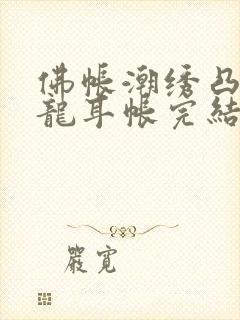 佛帐潮绣凸
龍耳帐完結
嚴寬